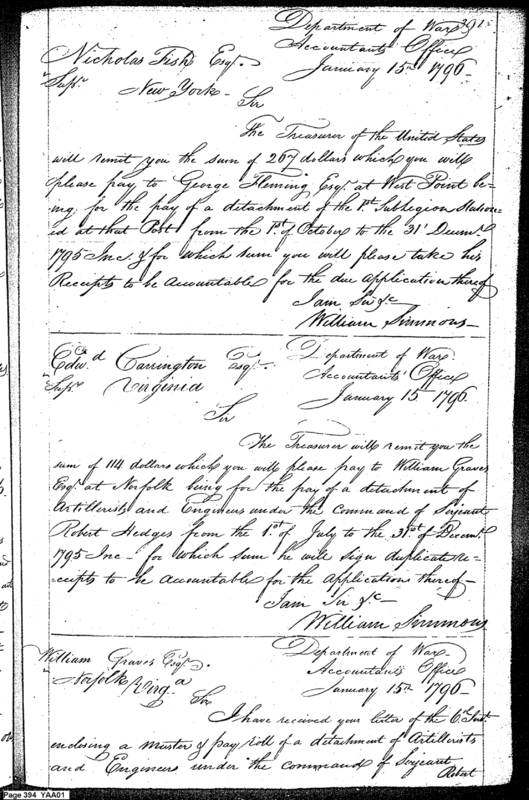 391
Department of War
Accountants Office
January 15th 1796
Nicholas Fish Esqr.
Supr. New York
Sir
The Treasurer of the United States
will remit you the sum of 267 dollars which you will
please pay to George Fleming Esqr. at West Point be-
ing for the pay of a detachment of the 1st Sublegion Station
ed at that Post from the 1st of October to the 31st Decemr.
1795 Inc. & for which sum you will please take his
Receipts to be Accountable for the due Application thereof
I am Sir &c
William Simmons
Department of War
Accountants Office
January 15 1796
Edwd. Carrington Esqr.
Supr. Virginia
Sir
The Treasurer will remit you the
sum of 114 dollars which you will please pay to William Graves
Esqr. at Norfolk being for the pay of a detachment of
Artillerists and Engineers under the command of Serjeant
Robert Hedges from the 1st of July to the 31st of Decemr.
1795 Inc for which sum he will sign duplicate re-
ceipts to be accountable for the Application thereof
I am Sir &c
William Simmons
Department of War
Accountants Office
January 15th 1796
William Graves Esqr.
Norfolk Virga
Sir
I have received your letter of the 6th Inst
enclosing a muster & pay roll of a detachment of Artillerists
and Engineers under the command of Serjeant
Robert
Page 394 YAA01